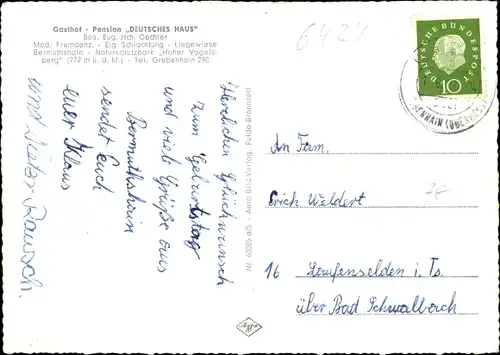 Gasthof - Pension „DEUTSCHES HAUS"
Bes. Eug. Hch. Oechler
Mod. Fremdenz. - Eig. Schlachtung - Liegewiese
Bermuthshain - Naturschutzpark „Hoher Vogels-
berg" (772 m ü. d. M.) - Tel. Grebenhain 290
6424
DEUTSCHE BUNDESPOST
10
HAIN (OBERHESS
Herzlichen Glückwunsch
zum Geburtstag
und viele Grüße aus
Bermuthshain
sendet Euch
euer Klaus
und Dieter Rausch.
Nr. 60085 a/5 - Aero-Bild-Verlag, Fulda-Bronnzell
An Fam.
Erich Weldert
16 Laufenselden i. Ts.
über Bad Schwalbach